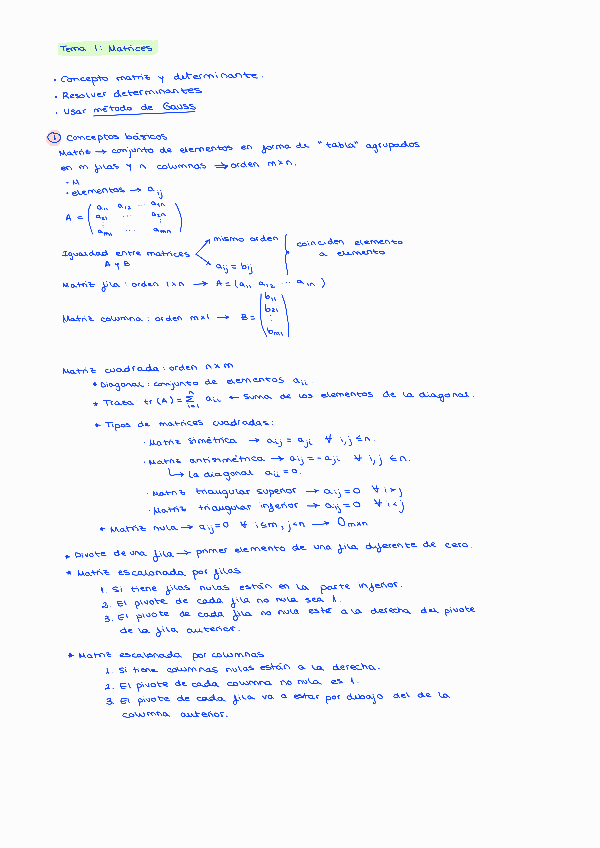 Tema 1: Matrices
· Concepto matriz y determinante.
· Resolver determinantes
· Usar método de Gauss
① Conceptos básicos
Matriz → conjunto de elementos en forma de "tabla" agrupados
en m filas y n columnas ⇒ orden m×n.
· M
· elementos → aij
A = ( a11 a12 ... a1n
a21 ... a2n
⋮ ⋮
am1 ... amn )
Igualdad entre matrices A y B
mismo orden
aij = bij
coinciden elemento a elemento
Matriz fila : orden 1×n → A = (a11 a12 ... a1n )
Matriz columna : orden m×1 → B = ( b11
b21
⋮
bm1 )
Matriz cuadrada : orden n×m
* Diagonal : conjunto de elementos aii
* Traza tr(A) = Σ(i=1, n) aii ← Suma de los elementos de la diagonal.
* Tipos de matrices cuadradas:
· Matriz simétrica → aij = aji ∀ i,j ≤ n.
· Matriz antisimétrica → aij = -aji ∀ i,j ≤ n.
↳ La diagonal aii = 0.
· Matriz triangular superior → aij = 0 ∀ i > j
· Matriz triangular inferior → aij = 0 ∀ i < j
* Matriz nula → aij = 0 ∀ i ≤ m, j < n → 0m×n
* Pivote de una fila → primer elemento de una fila diferente de cero.
* Matriz escalonada por filas
1. Si tiene filas nulas están en la parte inferior.
2. El pivote de cada fila no nula sea 1.
3. El pivote de cada fila no nula esté a la derecha del pivote
de la fila anterior.
* Matriz escalonada por columnas
1. Si tiene columnas nulas están a la derecha.
2. El pivote de cada columna no nula es 1.
3. El pivote de cada fila va a estar por debajo del de la
columna anterior.